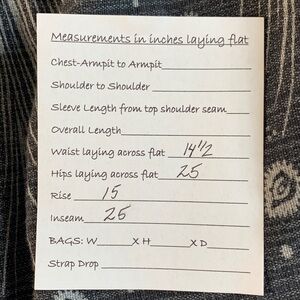 Measurements in inches laying flat
Chest-Armpit to Armpit
Shoulder to Shoulder
Sleeve Length from top shoulder seam
Overall Length
Waist laying across flat 14 1/2
Hips laying across flat 25
Rise 15
Inseam 26
BAGS: W X H X D
Strap Drop